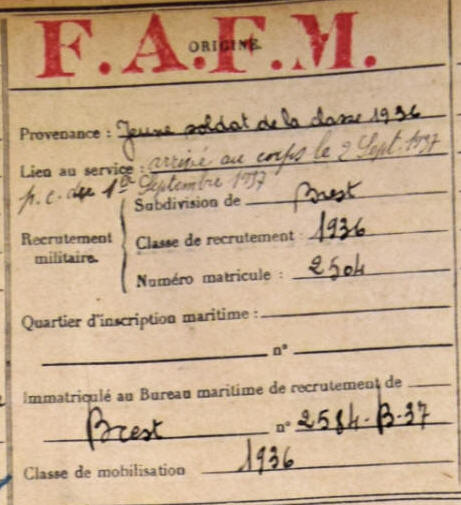 F.A.F.M.
ORIGINE.
Provenance : Jeune soldat de la classe 1936
Lien au service : arrivé au corps le 2 Sept. 1937
p. c. du 1er Septembre 1937
Subdivision de Brest
Recrutement militaire.
Classe de recrutement : 1936
Numéro matricule : 2504
Quartier d'inscription maritime :
n°
Immatriculé au Bureau maritime de recrutement de
Brest n° 2584-B-37
Classe de mobilisation 1936